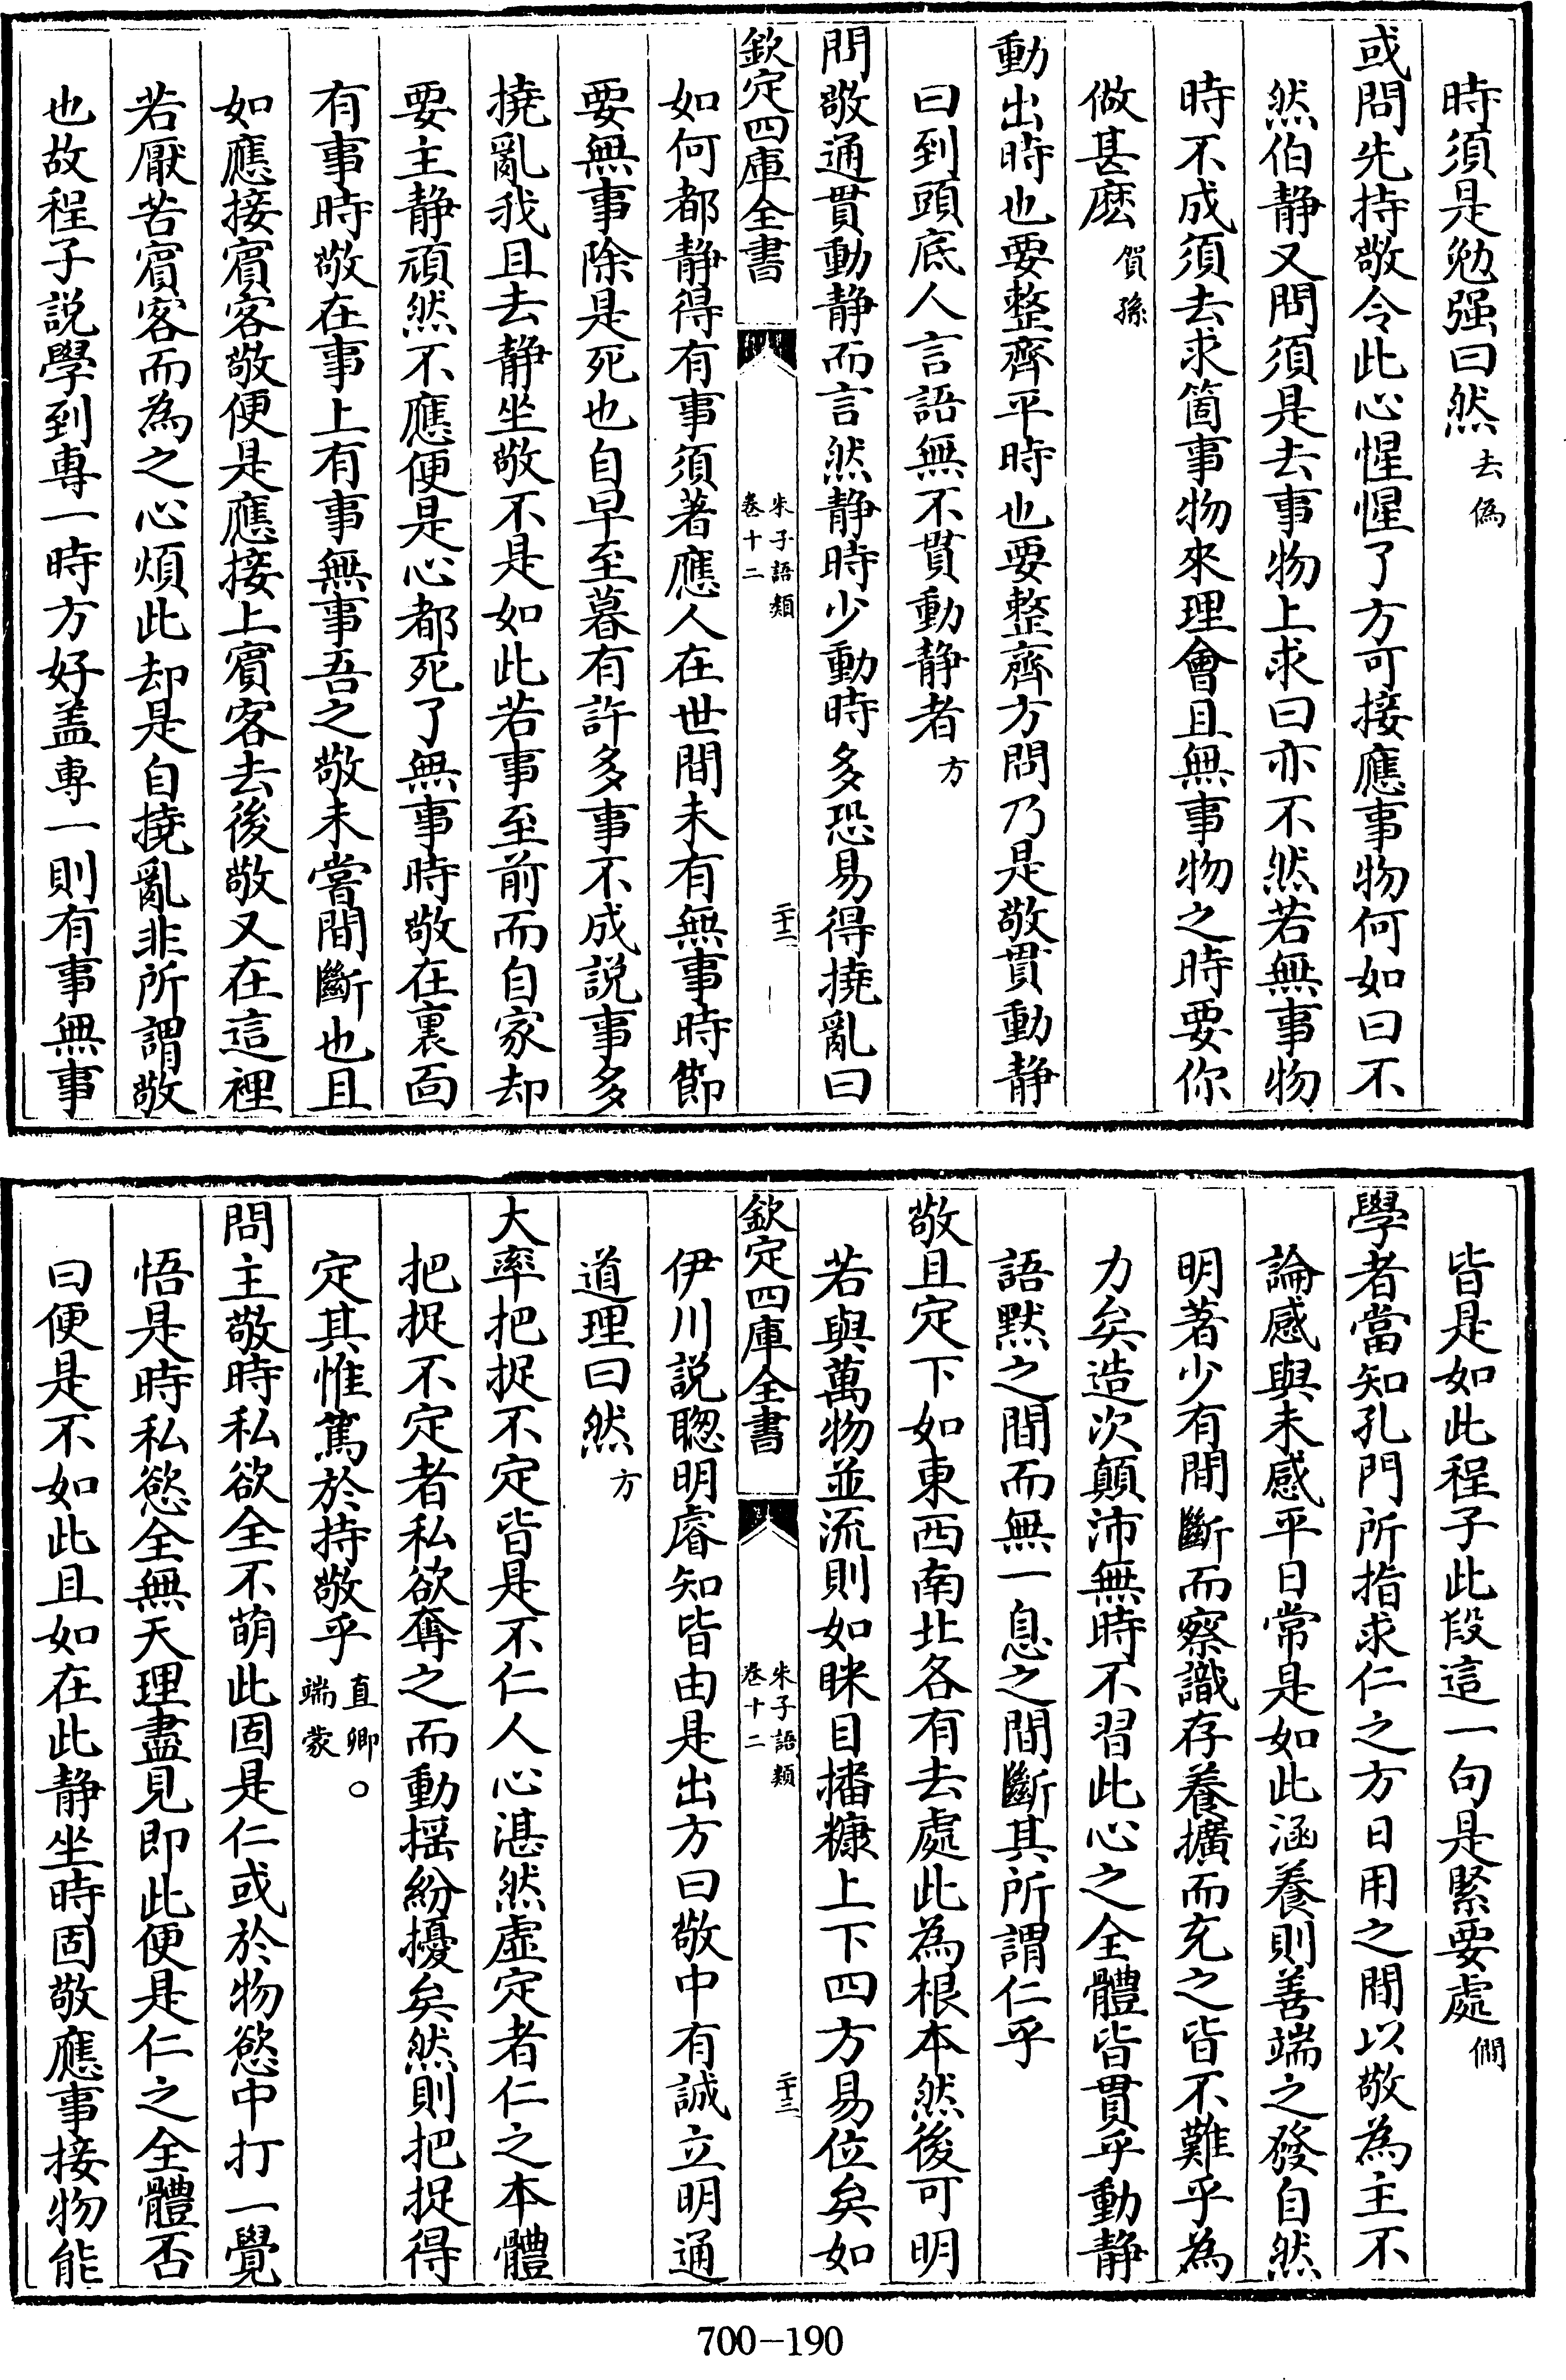 時須是勉强曰然去偽
或問先持敬令此心惺惺了方可接應事物何如曰不
然伯静又問須是去事物上求曰亦不然若無事物
時不成須去求箇事物來理會且無事物之時要你
做甚麽賀孫
動出時也要整齊平時也要整齊方問乃是敬貫動静
曰到頭底人言語無不貫動静者方
問敬通貫動静而言然静時少動時多恐易得撓亂曰
欽定四庫全書
朱子語類
卷十二
二十二
如何都静得有事須著應人在世間未有無事時節
要無事除是死也自早至暮有許多事不成説事多
撓亂我且去静坐敬不是如此若事至前而自家却
要主静頑然不應便是心都死了無事時敬在裏面
有事時敬在事上有事無事吾之敬未嘗間斷也且
如應接賔客敬便是應接上賔客去後敬又在這裡
若厭苦賔客而為之心煩此却是自撓亂非所謂敬
也故程子説學到專一時方好盖專一則有事無事
皆是如此程子此段這一句是緊要處僩
學者當知孔門所指求仁之方日用之間以敬為主不
論感與未感平日常是如此涵養則善端之發自然
明著少有間斷而察識存養擴而充之皆不難乎為
力矣造次顛沛無時不習此心之全體皆貫乎動静
語黙之間而無一息之間斷其所謂仁乎
敬且定下如東西南北各有去處此為根本然後可明
若與萬物並流則如眯目播糠上下四方易位矣如
欽定四庫全書
朱子語類
卷十二
二十三
伊川説聰明睿知皆由是出方曰敬中有誠立明通
道理曰然方
大率把捉不定皆是不仁人心湛然虚定者仁之本體
把捉不定者私欲奪之而動揺紛擾矣然則把捉得
定其惟篤於持敬乎直卿○端蒙
問主敬時私欲全不萌此固是仁或於物慾中打一覺
悟是時私慾全無天理盡見即此便是仁之全體否
曰便是不如此且如在此静坐時固敬應事接物能
700-190